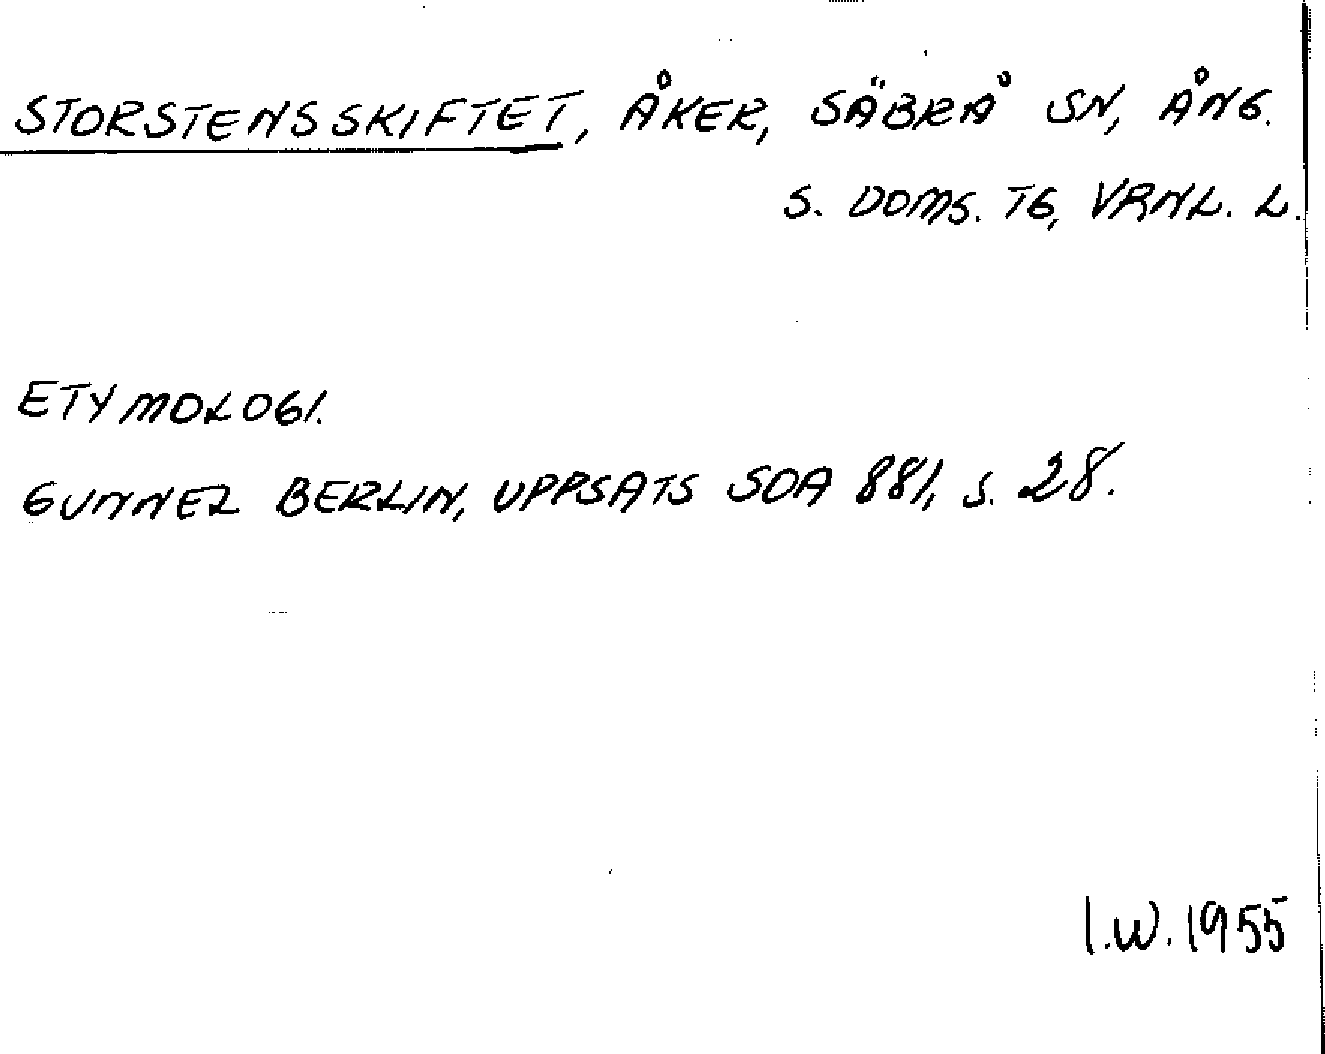 STORSTENSSKIFTET, ÅKER, SÄBRÅ SN, ÅNG.
S. DOMS. TG, VRNL. L.
ETYMOLOGI.
GUNNEL BERLIN, UPPSATS SOA 881, S. 28.
I.W. 1955